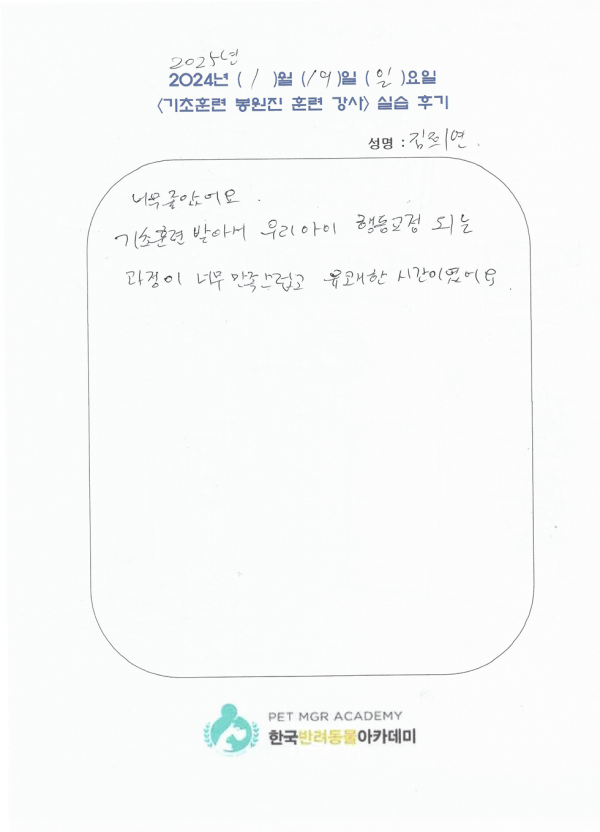 2025년
2024년 ( 1 )월 ( 19 )일 ( 일 )요일
<기초훈련 봉원진 훈련 강사> 실습 후기
성명 : 김희연.
너무 좋았어요.
기초훈련 받아서 우리아이 행동교정 되는
과정이 너무 만족스럽고 유쾌한 시간이였어요.
PET MGR ACADEMY
한국반려동물아카데미